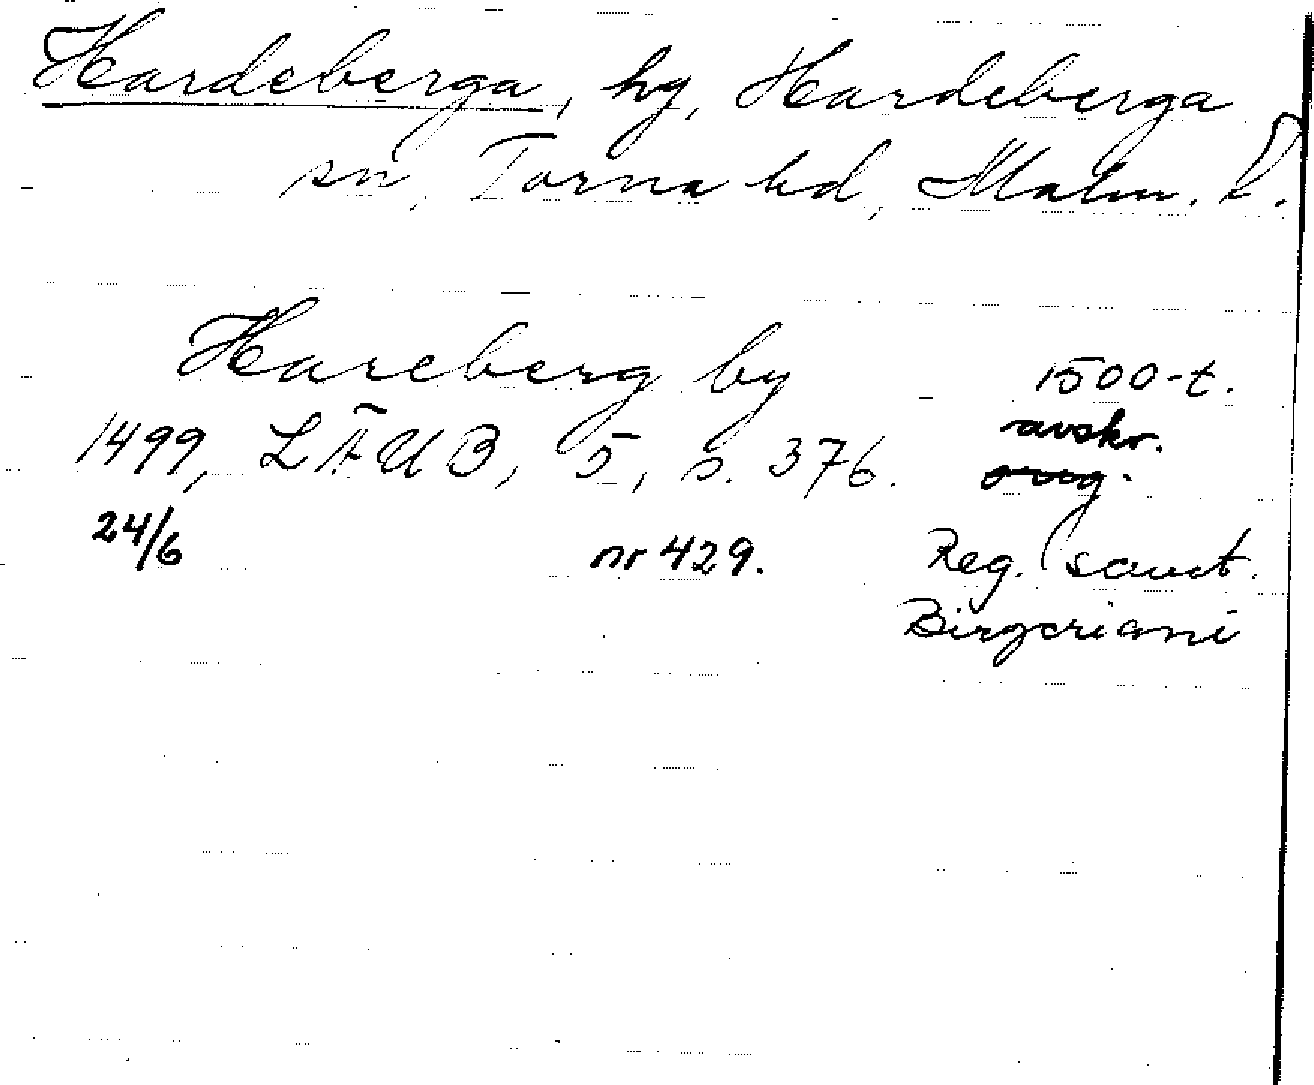 Hardeberga, hg, Hardeberga
sn, Torna hd, Malm. l.
Hareberg by
1500-t.
1499, LÄUB, 5, s. 376.
avskr.
orig.
24/6 nr 429.
Reg. sanct.
Birgeriani